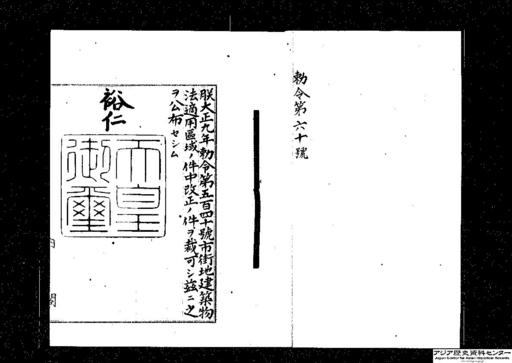 勅令第六十號
朕大正九年勅令第五百四十號市街地建築物
法適用區域ノ件中改正ノ件ヲ裁可シ茲ニ之
ヲ公布セシム
裕仁
天皇
御璽
内閣
アジア歴史資料センター
Japan Center for Asian Historical Records